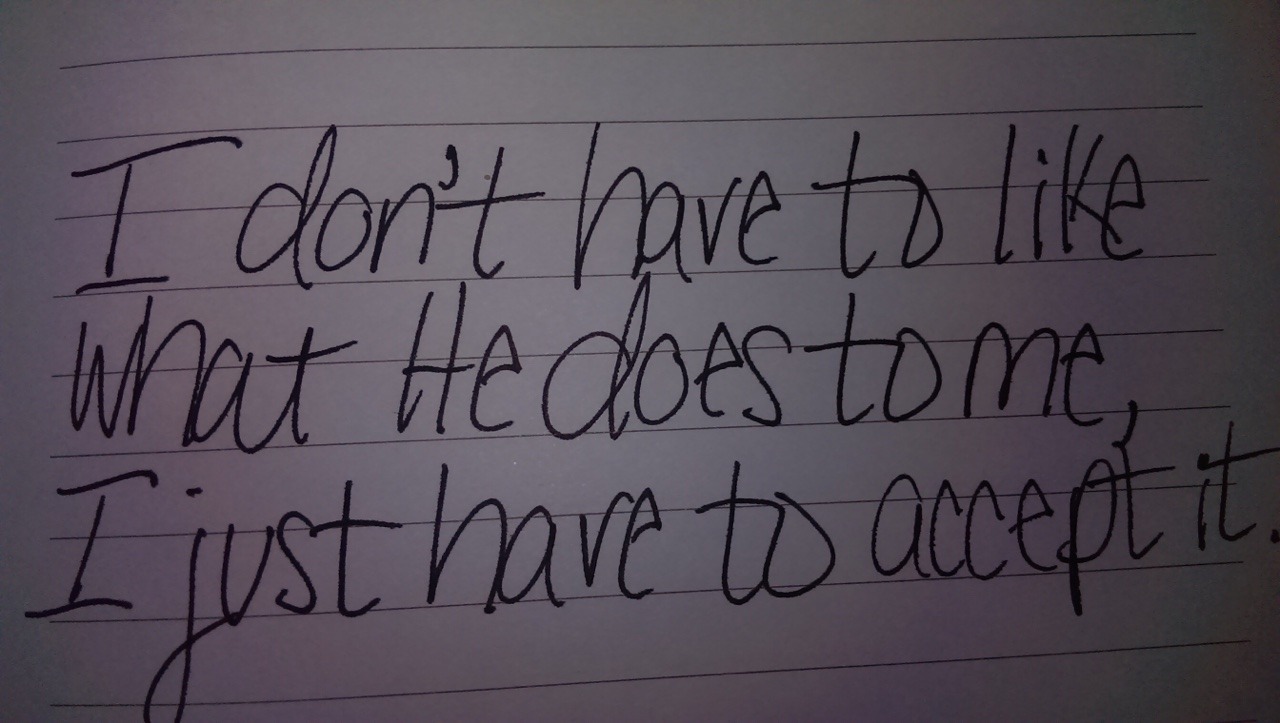 I don't have to like
what He does to me,
I just have to accept it.